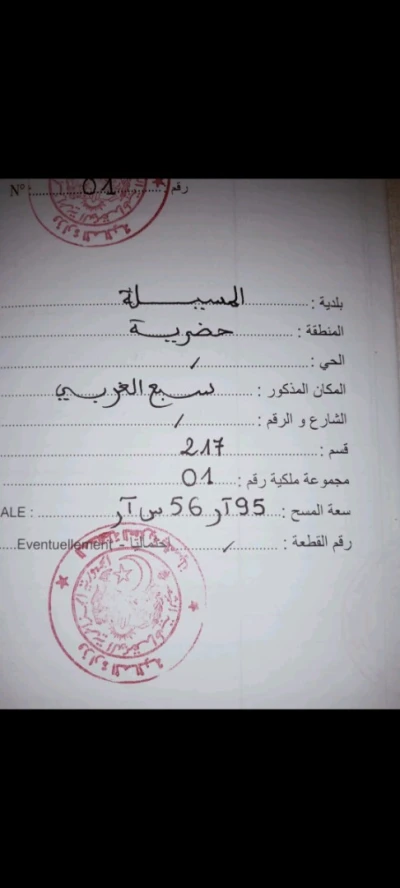 N° : 01 رقم :
بلدية : المسيلة
المنطقة : حضرية
الحي : /
المكان المذكور : سبع الغربي
الشارع و الرقم : /
قسم : 217
مجموعة ملكية رقم : 01
سعة المسح : 95 آر 56 س آر ALE :
رقم القطعة : / إحتماليا - Eventuellement